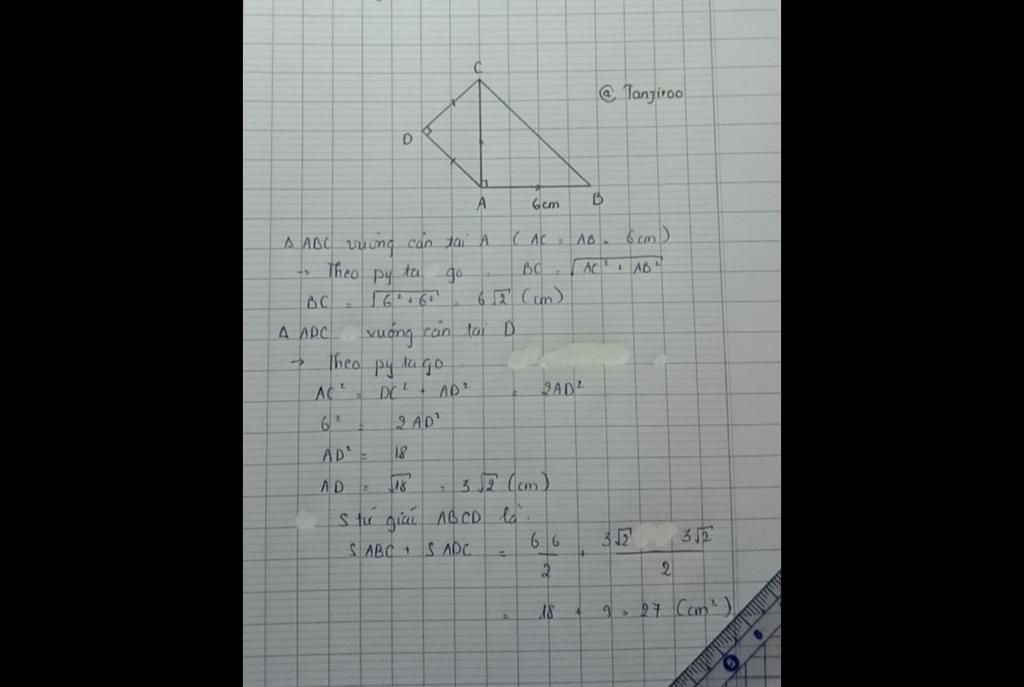 C
@ Tanjiroo
D
A 6cm B
Δ ABC vuông cân tại A ( AC = AB = 6cm)
→ Theo py ta go BC = √AC² + AB²
BC = √6² + 6² = 6√2 (cm)
Δ ADC vuông cân tại D
→ Theo py ta go
AC² = DC² + AD² = 2AD²
6² = 2AD²
AD² = 18
AD = √18 = 3√2 (cm)
S tứ giác ABCD là:
S ABC + S ADC = 6.6/2 + 3√2 3√2/2
= 18 + 9 = 27 (cm²)